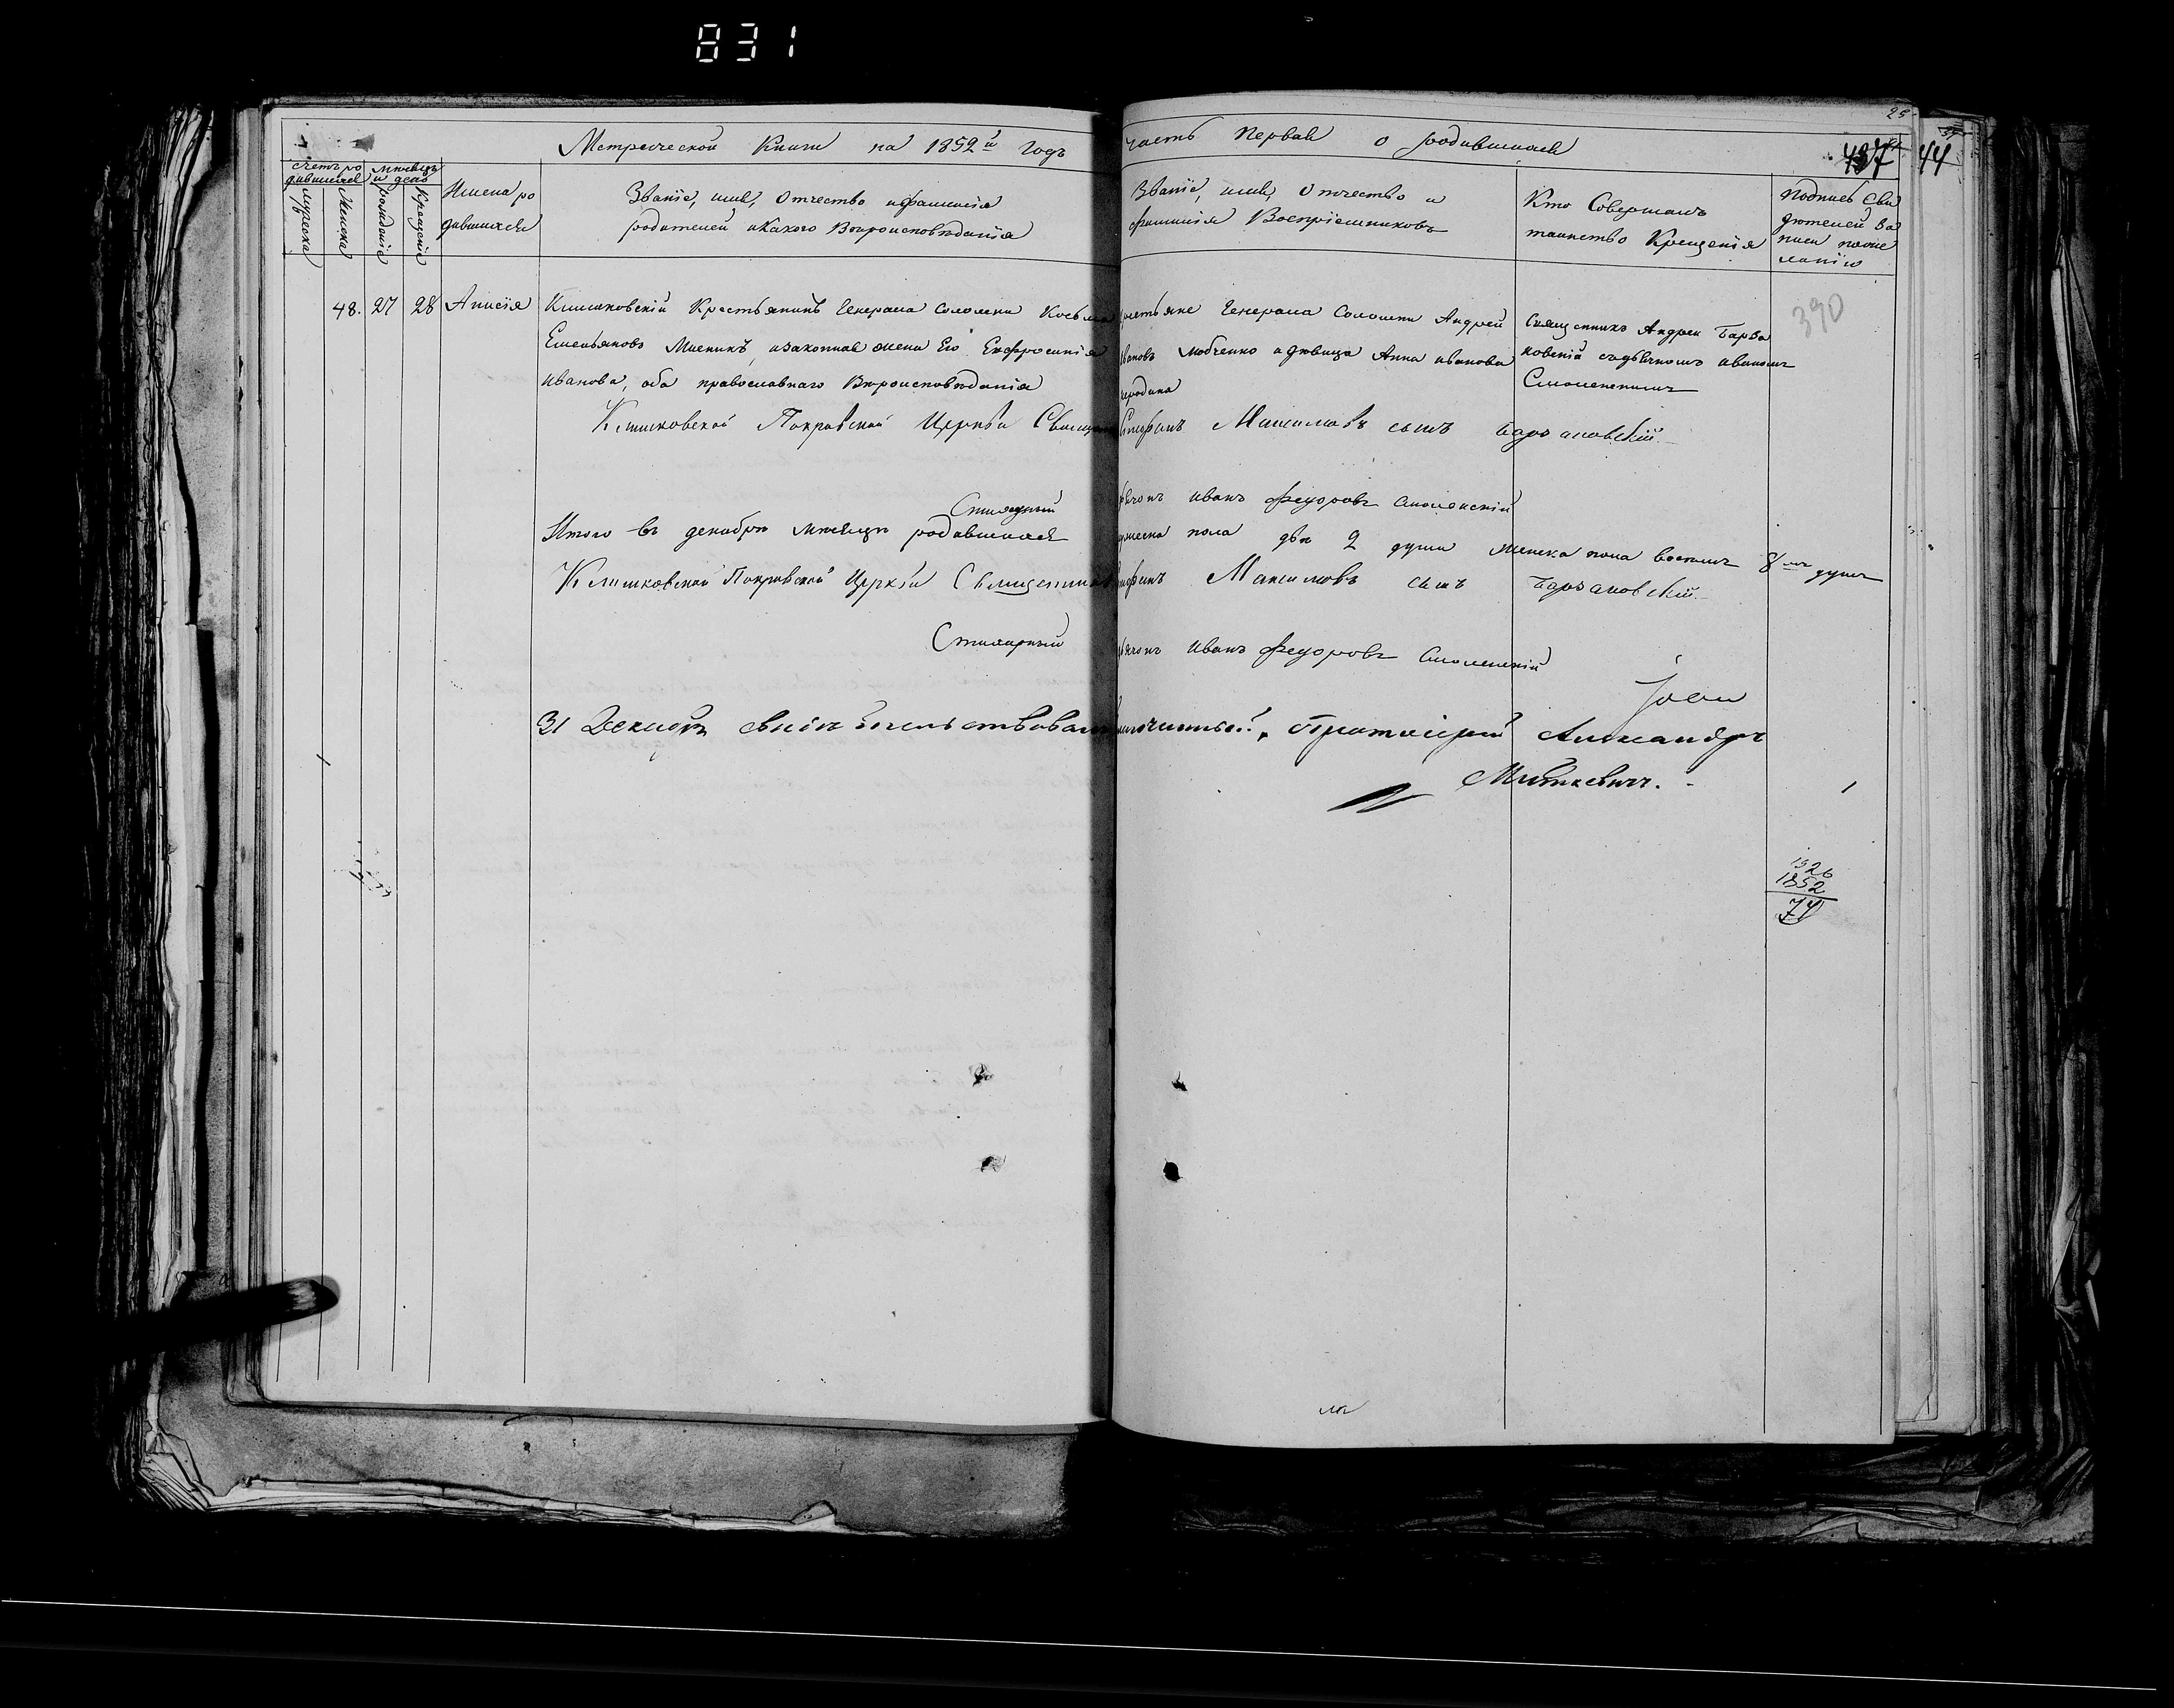 831
Метрической Книги на 1852й годъ часть первая о родившихся
25
437 44
счетъ родившихся
мужеска
женска
мѣсяцъ и день
рожденія
крещенія
Имена родившихся
Званіе, имя, отчество и фамилія
родителей и какого Вѣроисповѣданія
Званіе, имя, отчество и
фамилія Воспріемниковъ
Кто Совершалъ
таинство Крещенія
Подпись Сви
дѣтелей за
писи по же
ланію
48. 27 28 Анисія
Климковскій Крестьянинъ Генерала Соломки Козьма
Емельяновъ Мисникъ, изаконная жена Его Евфросинія
Иванова, оба православнаго Вѣроисповѣданія
крестьяне Генерала Соломки Андрей
Ивановъ Любченко идѣвица Анна иванова
Священникъ Андрей Барза
ковскій содьячкомъ иваномъ
Смоленскимъ
390
Покровской Церкви Священникъ Максимовъ сынъ
Стихарный дьячокъ иванъ Федоровъ Смоленскій
Итого въ декабрѣ мѣсяцѣ родившихся мужеска пола двѣ 2 души женска пола восемь 8мь душъ
Покровской Церкви Священникъ Максимовъ сынъ
Стихарный дьячокъ иванъ Федоровъ Смоленскій
31 Декабря свидѣтельствовалъ Протоіерей Александръ
Миткевичъ.
1926
1852
74